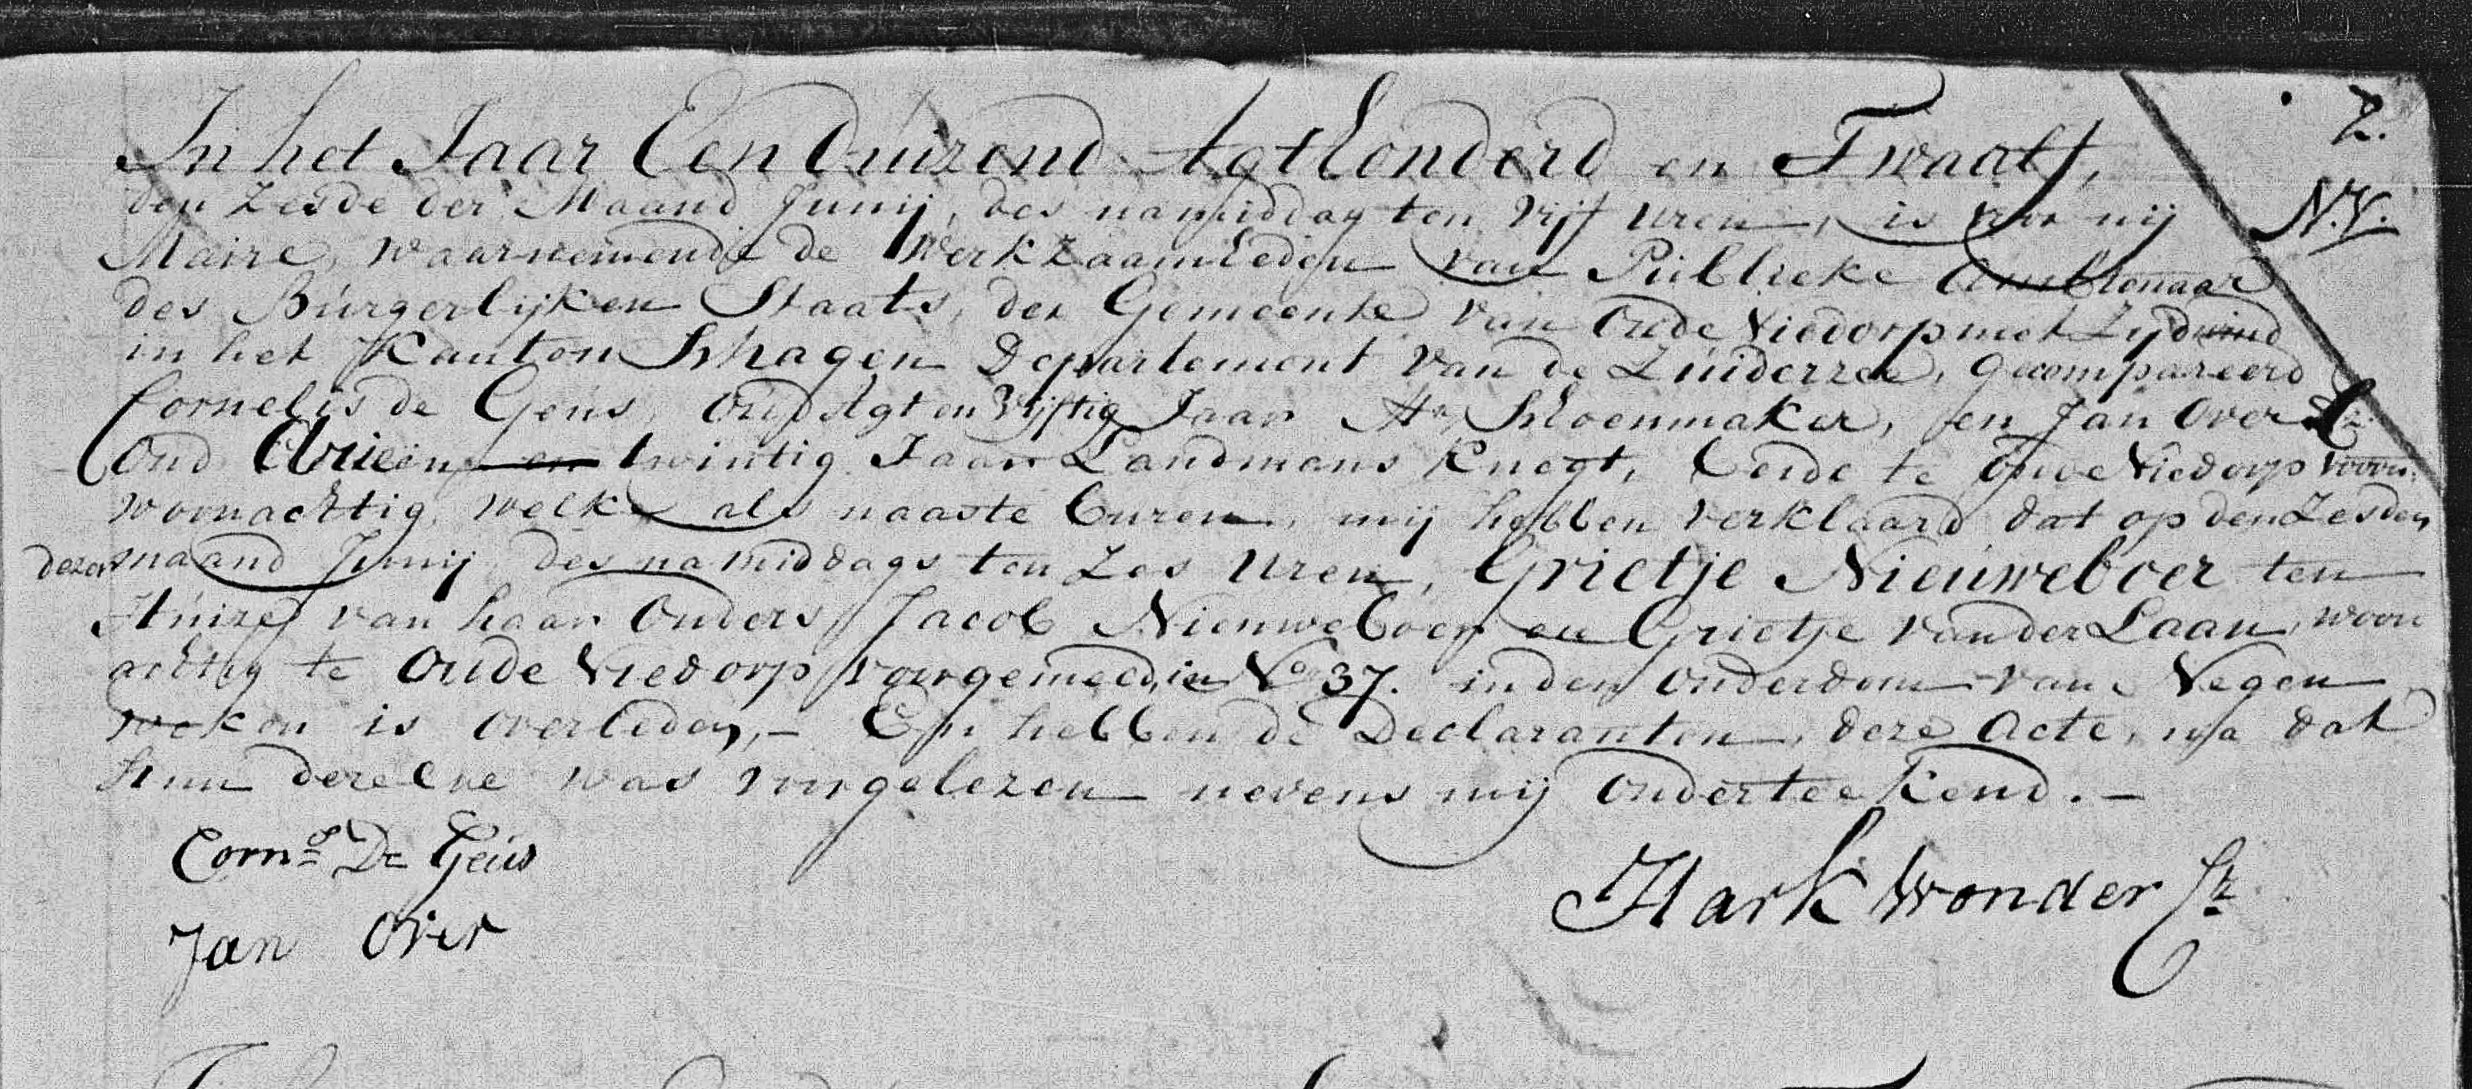 2.
N. V.
In het Jaar Een Duizend Agt Honderd en Twaalf,
den Zesde der Maand Junij, des namiddag ten vijf uren, is voor mij
Maire, waarnemende de Werkzaamheden van Publieke Ambtenaar
des Burgerlijken Staats, der Gemeente van Oude Niedorp met Zydwind
in het Kanton Schagen Departement van de Zuiderzee, gecompareerd
Cornelis de Geus, oud Agt en Vijftig Jaar Mr Schoenmaker, en Jan Over
Oud Drieën en twintig Jaar Landmans Knegt, beide te Oude Niedorp
woonachtig, welke als naaste buren, mij hebben verklaard dat op den Zesden
dezer maand Junij des namiddags ten Zes Uren, Grietje Nieuweboer ten
Huize van haar Ouders Jacob Nieuweboer en Grietje van der Laan, woon
achtig te Oude Niedorp voorgemeld, in No 37. in den Ouderdom van Negen
weken is overleden, - En hebben de Declaranten, deze Acte, na dat
Hun dezelve was voorgelezen nevens mij ondertekend. -
Corns De Geus
Hark Wonder
Jan Over